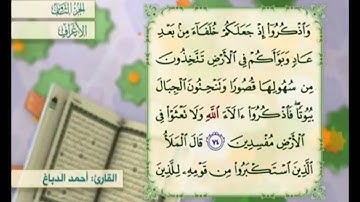 الجزء الثامن
الأعراف
وَاذْكُرُوا إِذْ جَعَلَكُمْ خُلَفَاءَ مِنْ بَعْدِ
عَادٍ وَبَوَّأَكُمْ فِي الْأَرْضِ تَتَّخِذُونَ
مِن سُهُولِهَا قُصُورًا وَتَنْحِتُونَ الْجِبَالَ
بُيُوتًا فَاذْكُرُوا ءَالَاءَ اللَّهِ وَلَا تَعْثَوْا فِي
الْأَرْضِ مُفْسِدِينَ ٧٤ قَالَ الْمَلَأُ
الَّذِينَ اسْتَكْبَرُوا مِن قَوْمِهِ لِلَّذِينَ
القارئ: أحمد الدباغ